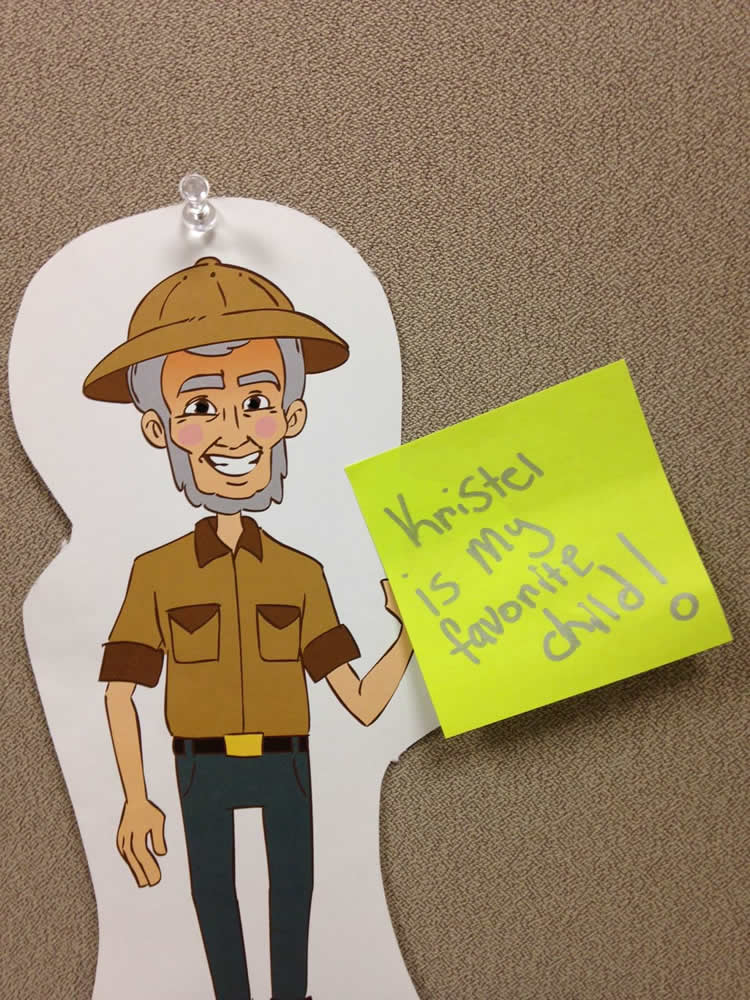 Kristel
is my
favorite
child!